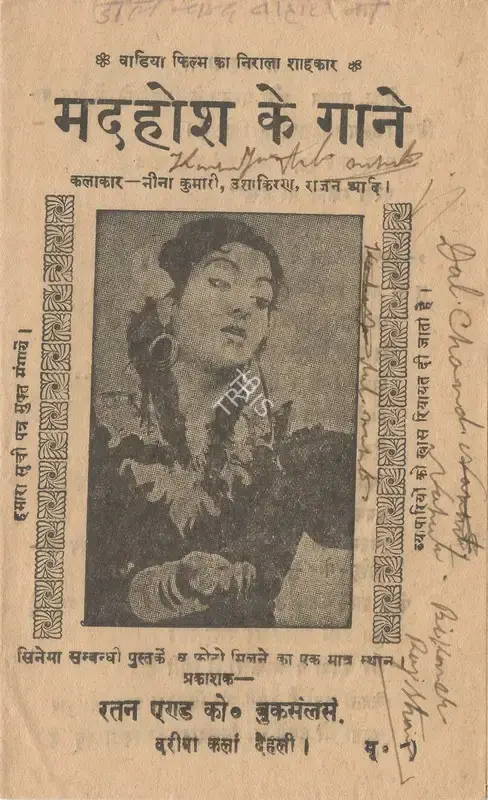 ❀ वाडिया फिल्म का निराला शाहकार ❀
मदहोश के गाने
कलाकार—मीना कुमारी, उशाकिरण, राजन आदि।
हमारा सूची पत्र मुफ्त मंगायें।
व्यापारियों को खास रियायत दी जाती है।
Dal Chand
सिनेमा सम्बन्धी पुस्तकें व फोटो मिलने का एक मात्र स्थान
प्रकाशक—
रतन एण्ड को० बुकसेलर्स,
दरीबा कलां देहली।
मू०